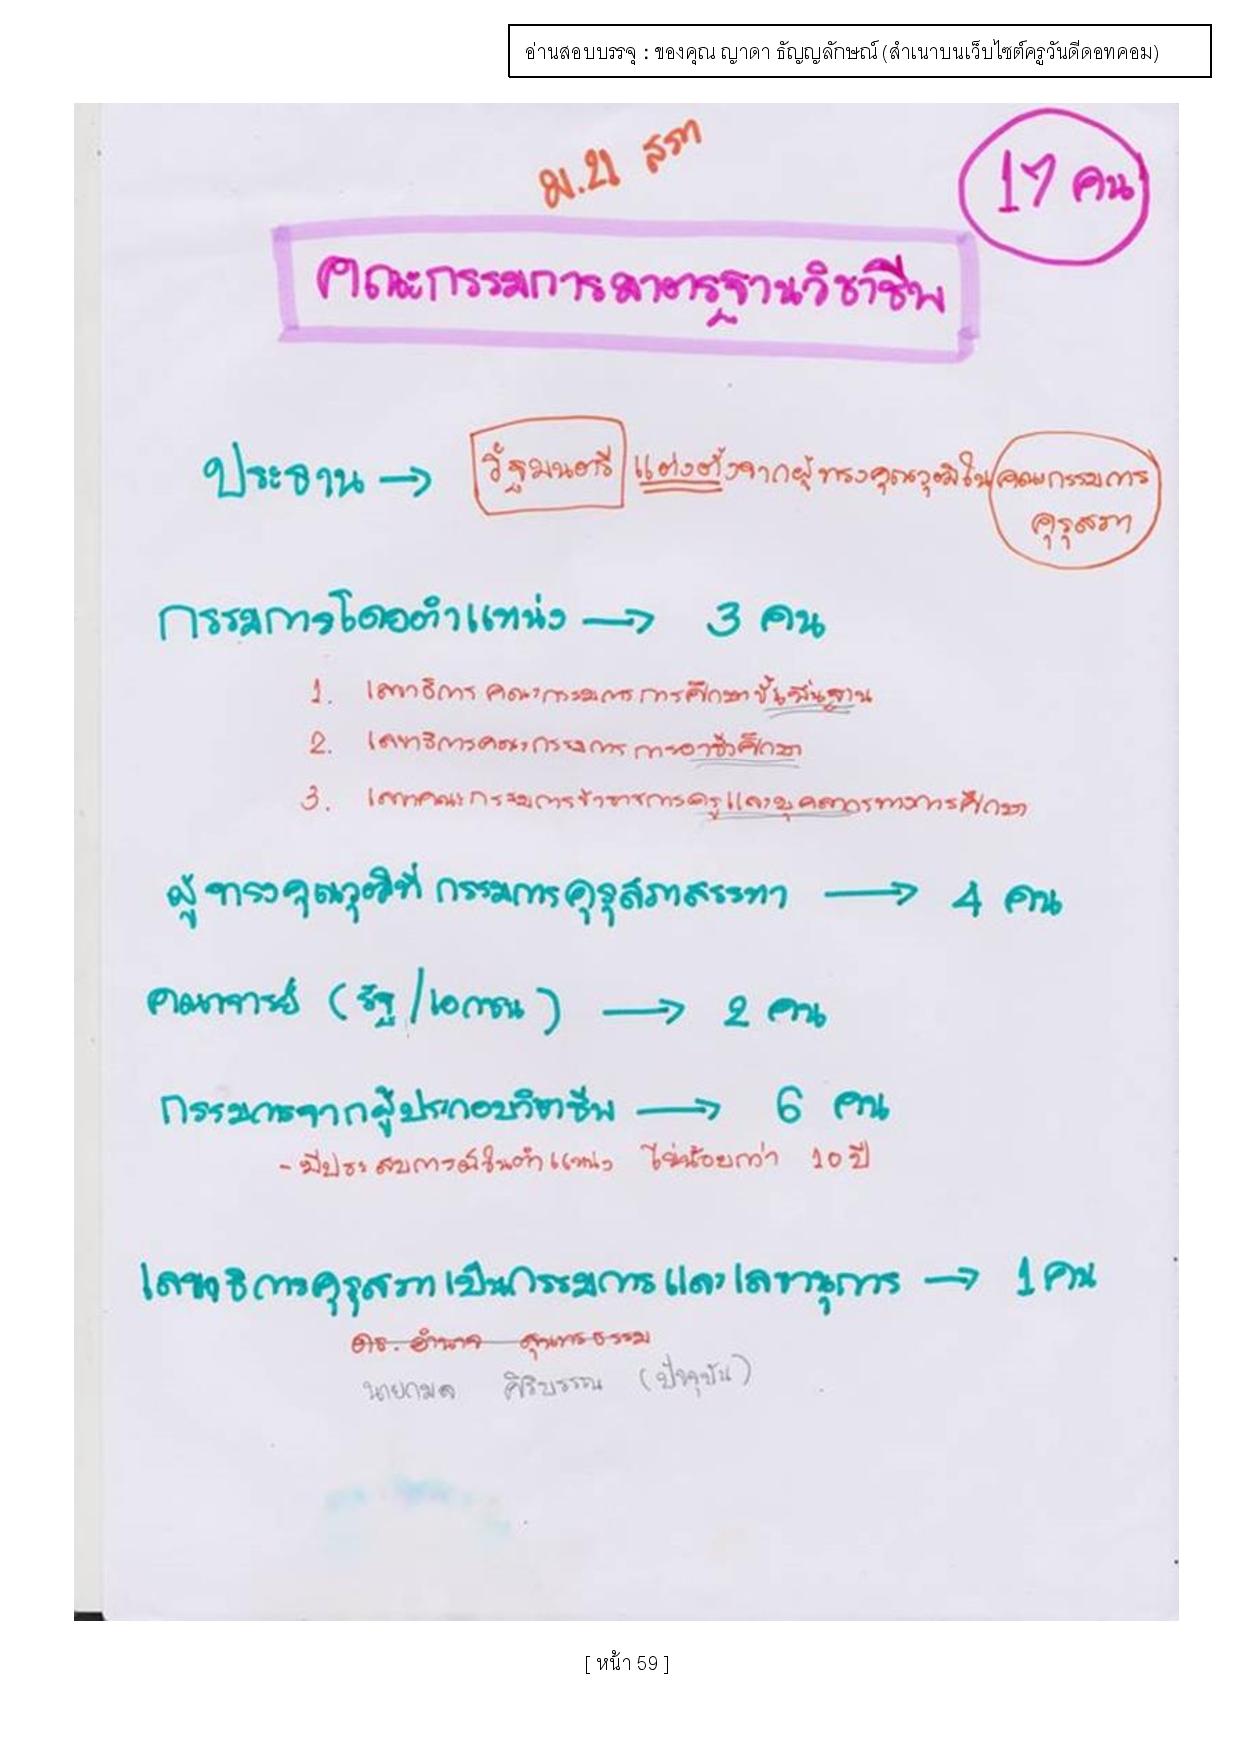 อ่านสอบบรรจุ : ของคุณ ญาดา ธัญญลักษณ์ (สำเนาบนเว็บไซต์ครูวันดีดอทคอม)
17 คน
คณะกรรมการมาตรฐานวิชาชีพ
ประธาน → รัฐมนตรี แต่งตั้งจากผู้ทรงคุณวุฒิใน คณะกรรมการ
คุรุสภา
กรรมการโดยตำแหน่ง → 3 คน
1. เลขาธิการ คณะกรรมการการศึกษาขั้นพื้นฐาน
2. เลขาธิการคณะกรรมการ การอาชีวศึกษา
3. เลขาคณะกรรมการข้าราชการครูและบุคลากรทางการศึกษา
ผู้ทรงคุณวุฒิที่ กรรมการคุรุสภาสรรหา → 4 คน
คณาจารย์ (รัฐ/เอกชน) → 2 คน
กรรมการจากผู้ประกอบวิชาชีพ → 6 คน
- มีประสบการณ์ในตำแหน่ง ไม่น้อยกว่า 10 ปี
เลขาธิการคุรุสภาเป็นกรรมการและเลขานุการ → 1 คน
ดร. อำนาจ สุนทรธรรม
นายกมล ศิริบรรณ (ปัจจุบัน)
[ หน้า 59 ]